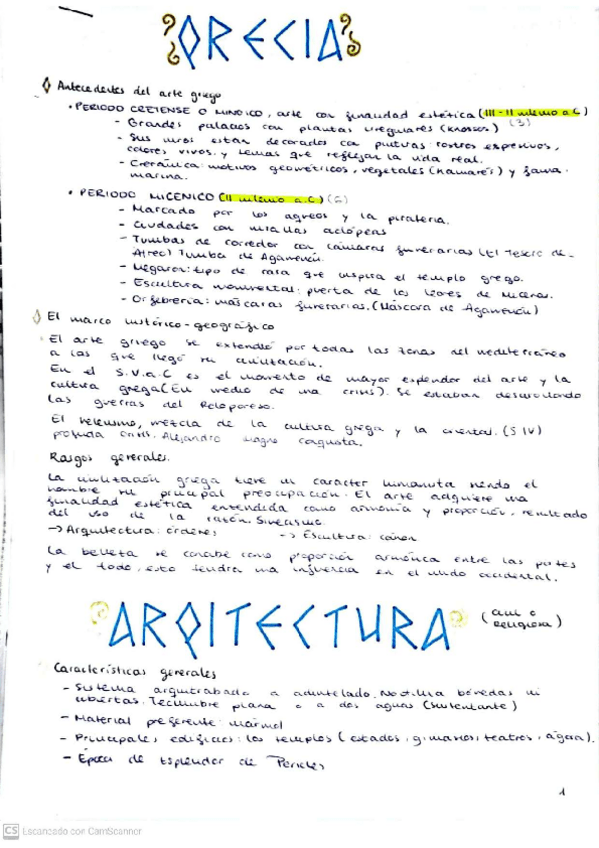 GRECIA
Antecedentes del arte griego
• PERIODO CRETENSE O MINOICO, arte con finalidad estética (III - II milenio a.C)
(3)
- Grandes palacios con plantas irregulares (Knossos)
- Sus muros están decorados con pinturas: rostros expresivos,
colores vivos y temas que reflejan la vida real.
- Cerámica: motivos geométricos, vegetales (Kamares) y fauna
marina.
• PERIODO MICENICO (II milenio a.C)
- Marcado por los aqueos y la piratería.
- Ciudades con murallas ciclópeas
- Tumbas de corredor con cámaras funerarias (El Tesoro de
Atreo) Tumba de Agamenón.
- Megaron: tipo de casa que inspira el templo griego.
- Escultura monumental: puerta de los leones de Micenas.
- Orfebrería: máscaras funerarias. (Máscara de Agamenón)
El marco histórico-geográfico
El arte griego se extendió por todas las zonas del mediterráneo
a las que llegó su civilización.
En el S.V.a.C es el momento de mayor esplendor del arte y la
cultura griega (En medio de una crisis). Se estaban desarrollando
las guerras del Peloponeso.
El helenismo, mezcla de la cultura griega y la oriental. (S IV)
profunda crisis. Alejandro Magno conquista.
Rasgos generales.
La civilización griega tiene un carácter humanista siendo el
hombre su principal preocupación. El arte adquiere una
finalidad estética entendida como armonía y proporción, resultado
del uso de la razón.
→ Arquitectura: órdenes → Escultura: canon
La belleza se concibe como proporción armónica entre las partes
y el todo, esto tendrá una influencia en el mundo occidental.
ARQITECTURA (civil o
religiosa)
Características generales
- Sistema arquitrabado o adintelado. No utiliza bóvedas ni
cubiertas. Techumbre plana o a dos aguas (sustentante)
- Material preferente: mármol
- Principales edificios: los templos (estadios, gimnasios, teatros, ágora).
- Época de Esplendor de Pericles
1
CS Escaneado con CamScanner